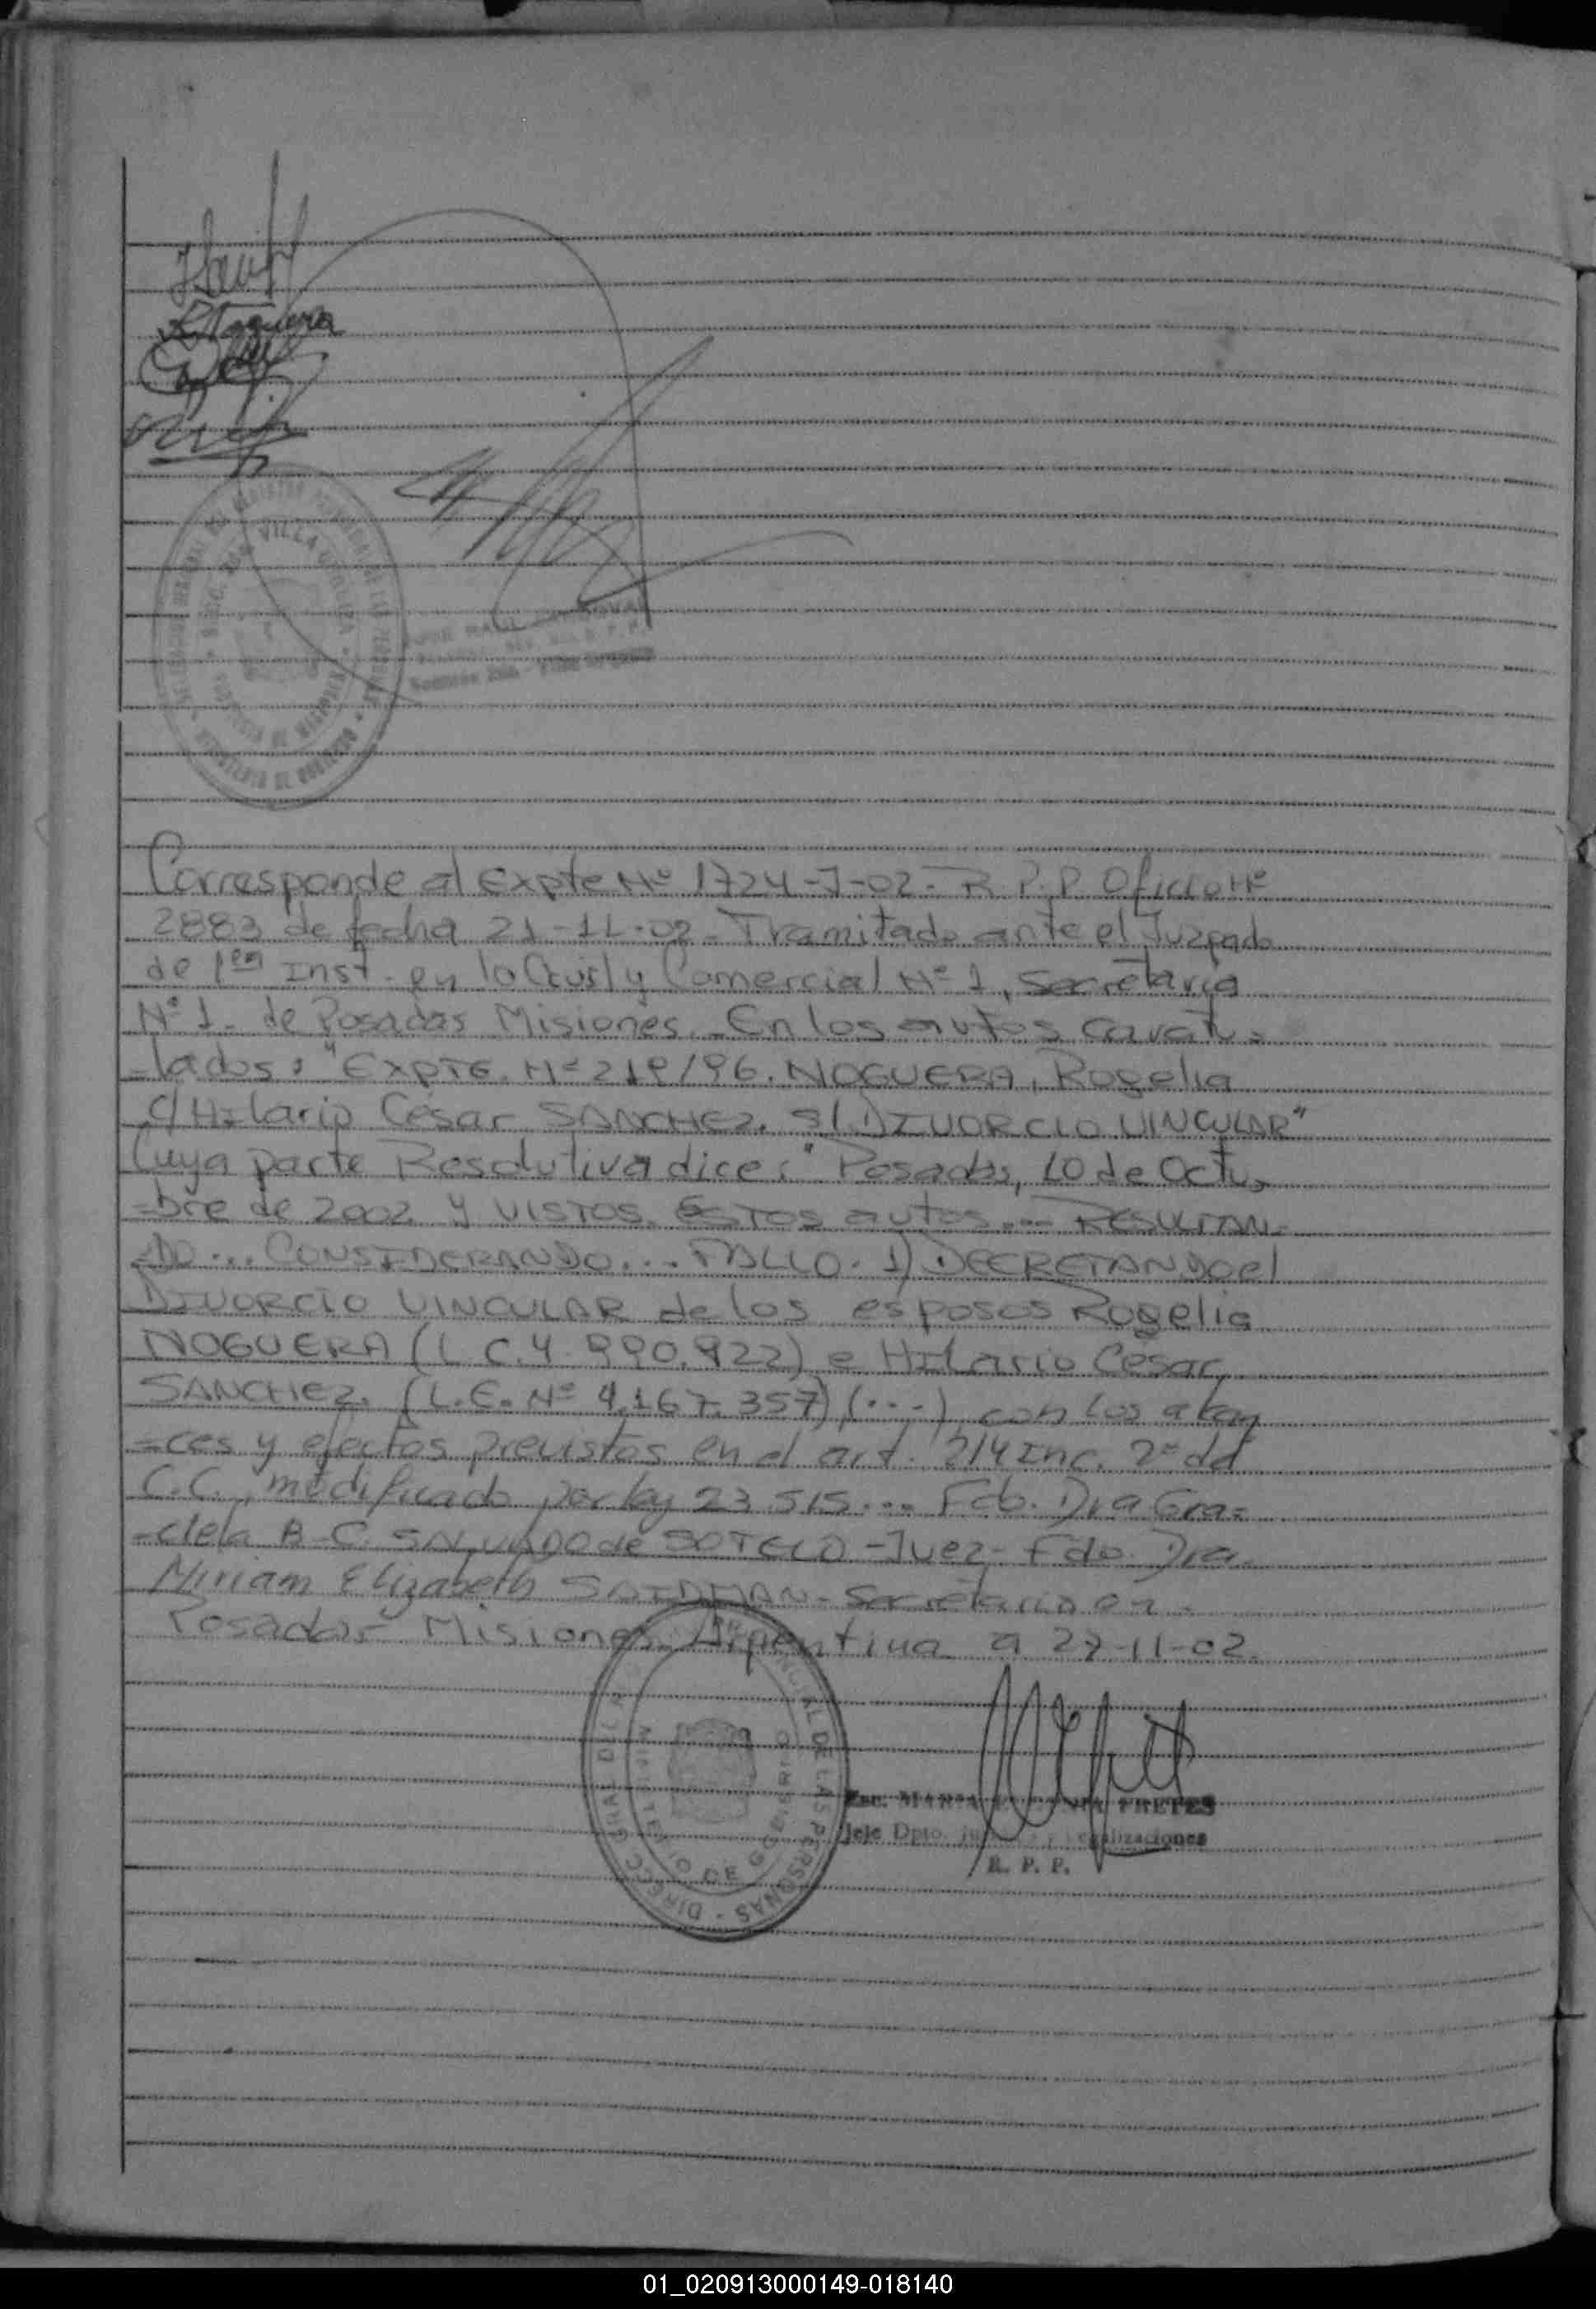 R Noguera
VILLA URQUIZA
Corresponde al Expte Nº 1724-J-02- R.P.P Oficio Nº
2883 de fecha 21-11-02- Tramitado ante el Juzgado
de 1era Inst. en lo Civil y Comercial Nº 1, Secretaria
Nº 1- de Posadas Misiones.- En los autos caratu=
=lados: "EXPTE. Nº 219/96. NOGUERA, Rogelia
C/ HIlario César SANCHEZ. S/ DIVORCIO VINCULAR"
Cuya parte Resolutiva dice: "Posadas, 10 de Octu=
=bre de 2002 Y VISTOS ESTOS autos... RESULTAN=
=DO... CONSIDERANDO... FALLO. 1) DECRETANDO el
DIVORCIO VINCULAR de los esposos Rogelia
NOGUERA (L.C.4.990.922) e HIlario César
SANCHEZ. (L.E. Nº 4.167.357) (...) con los alcan
=ces y efectos previstos en el art. 214 Inc. 2º del
C.C., modificado por ley 23.515... Fdo. Dra Gra=
=ciela B-C. SALVADO de SOTELO -Juez- Fdo. Dra.
Miriam Elizabeth SAIDMAN- Secretaria en
Posadas- Misiones Argentina a 27-11-02.
DIRECC GRAL DEL PROVINCIAL DE LAS PERSONAS -
MINISTERIO DE GOBIERNO
Esc. MARIA FRETES
Jefe Dpto. y Legalizaciones
R. P. P.
01_020913000149-018140